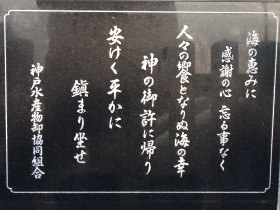 海の恵みに
感謝の心 忘る事なく
人々の饗となりぬ海の幸
神の御許に帰り
安けく平かに
鎮まり坐せ
神戸水産物卸協同組合